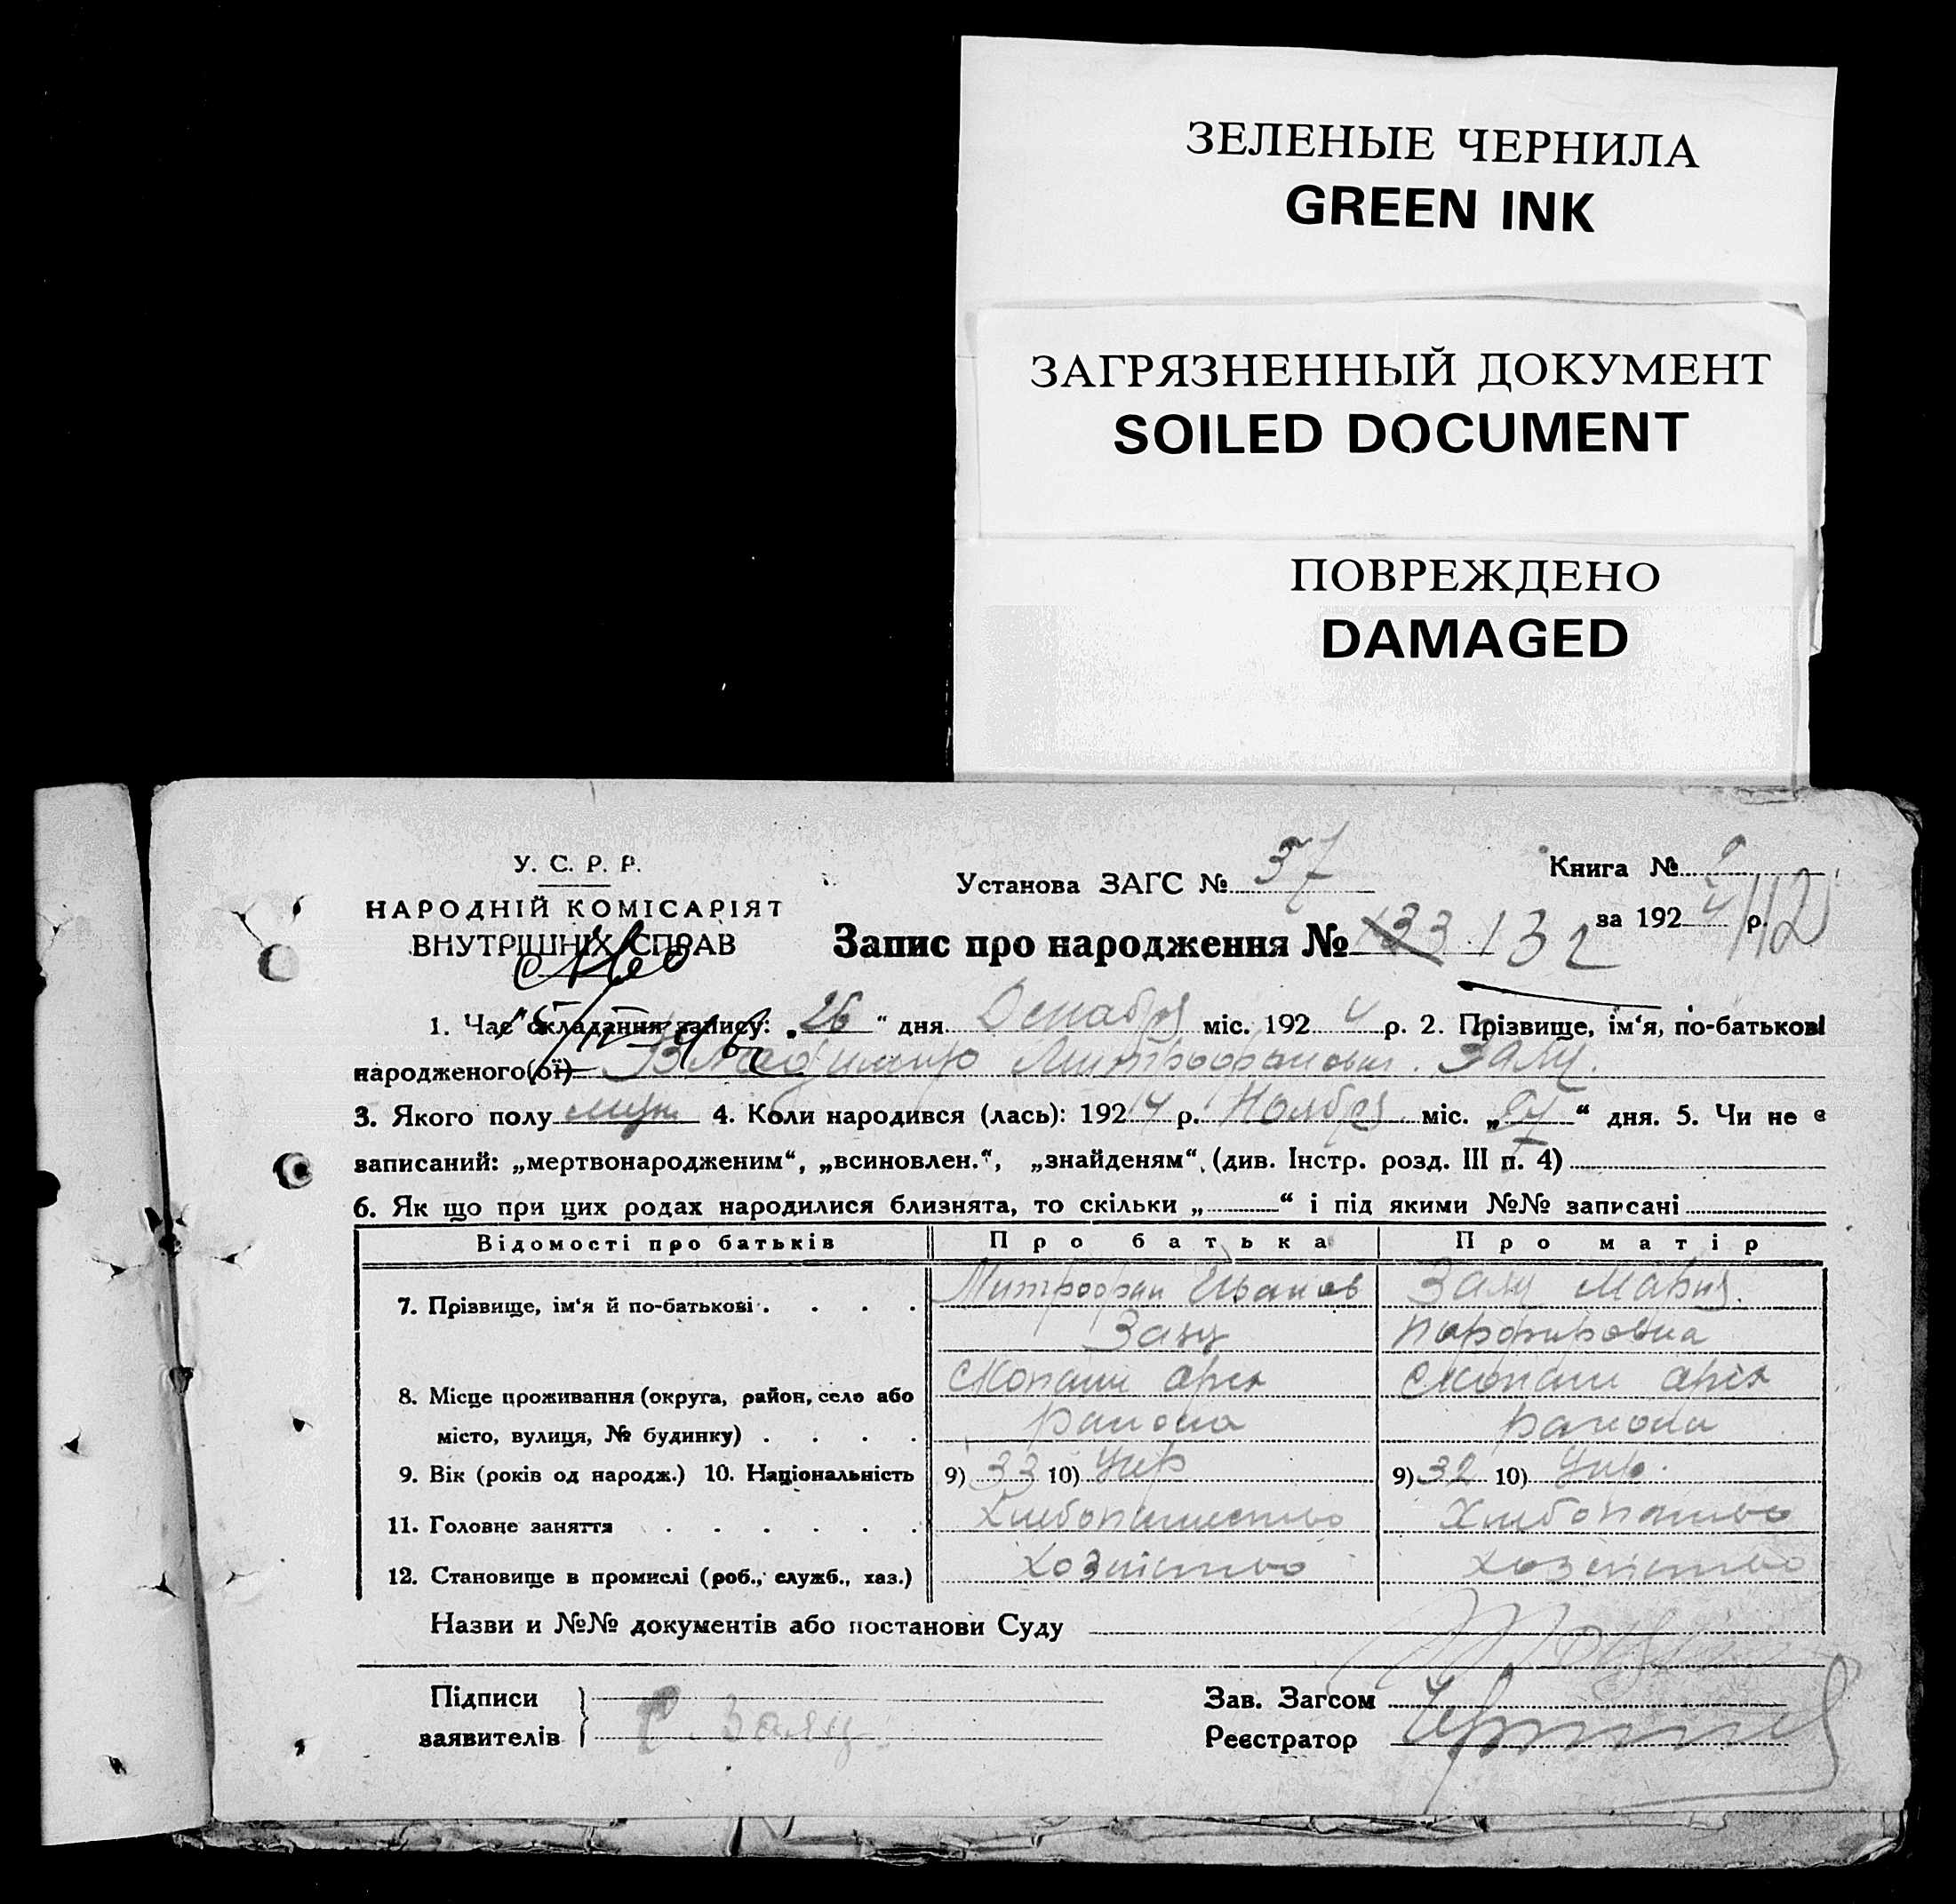 ЗЕЛЕНЫЕ ЧЕРНИЛА
GREEN INK
ЗАГРЯЗНЕННЫЙ ДОКУМЕНТ
SOILED DOCUMENT
ПОВРЕЖДЕНО
DAMAGED
У. С. Р. Р.
НАРОДНІЙ КОМІСАРІЯТ
ВНУТРІШНІХ СПРАВ
Установа ЗАГС № 37
Книга №
за 192 4 р.
112
Запис про народження № 133 132
1. Час складання запису: „ 26 “ дня Декабря міс. 192 4 р. 2. Прізвище, ім‘я, по-батькові
народженого(ої) Владимир Митрофанович Заяц.
3. Якого полу муж. 4. Коли народився (лась): 192 4 р. Ноября міс. „ “ дня. 5. Чи не є
записаний: „мертвонародженим“, „всиновлен.“, „знайденям“, (див. Інстр. розд. III п. 4)
6. Як що при цих родах народилися близнята, то скільки „ “ і під якими №№ записані
Відомості про батьків Про батька Про матір
7. Прізвище, ім‘я й по-батькові . . . . Митрофан Иванов Заяц Мария
Заяц Порфировна
8. Місце проживання (округа, район, село або Копани Орех Копани Орех
місто, вулиця, № будинку) . . . . района района
9. Вік (років од народж.) 10. Національність 9) 33 10) Укр 9) 32 10) Укр.
11. Головне заняття . . . . . . Хлебопашество
12. Становище в промислі (роб., служб., хаз.)
Назви и №№ документів або постанови Суду
Підписи Зав. Загсом
заявителів Заяц Реєстратор